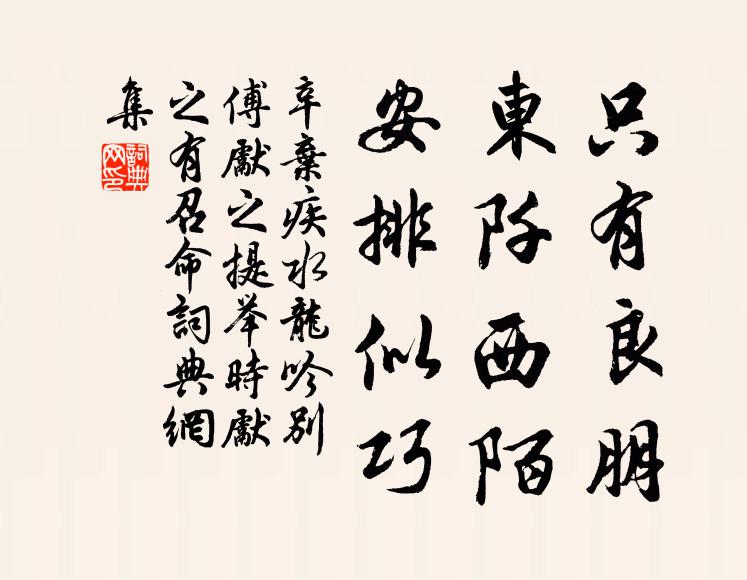 只有良朋
東阡西陌
安排似巧
辛棄疾水龍吟別
傅獻之提举時獻
之有召命詞典網
集
詞典
网印